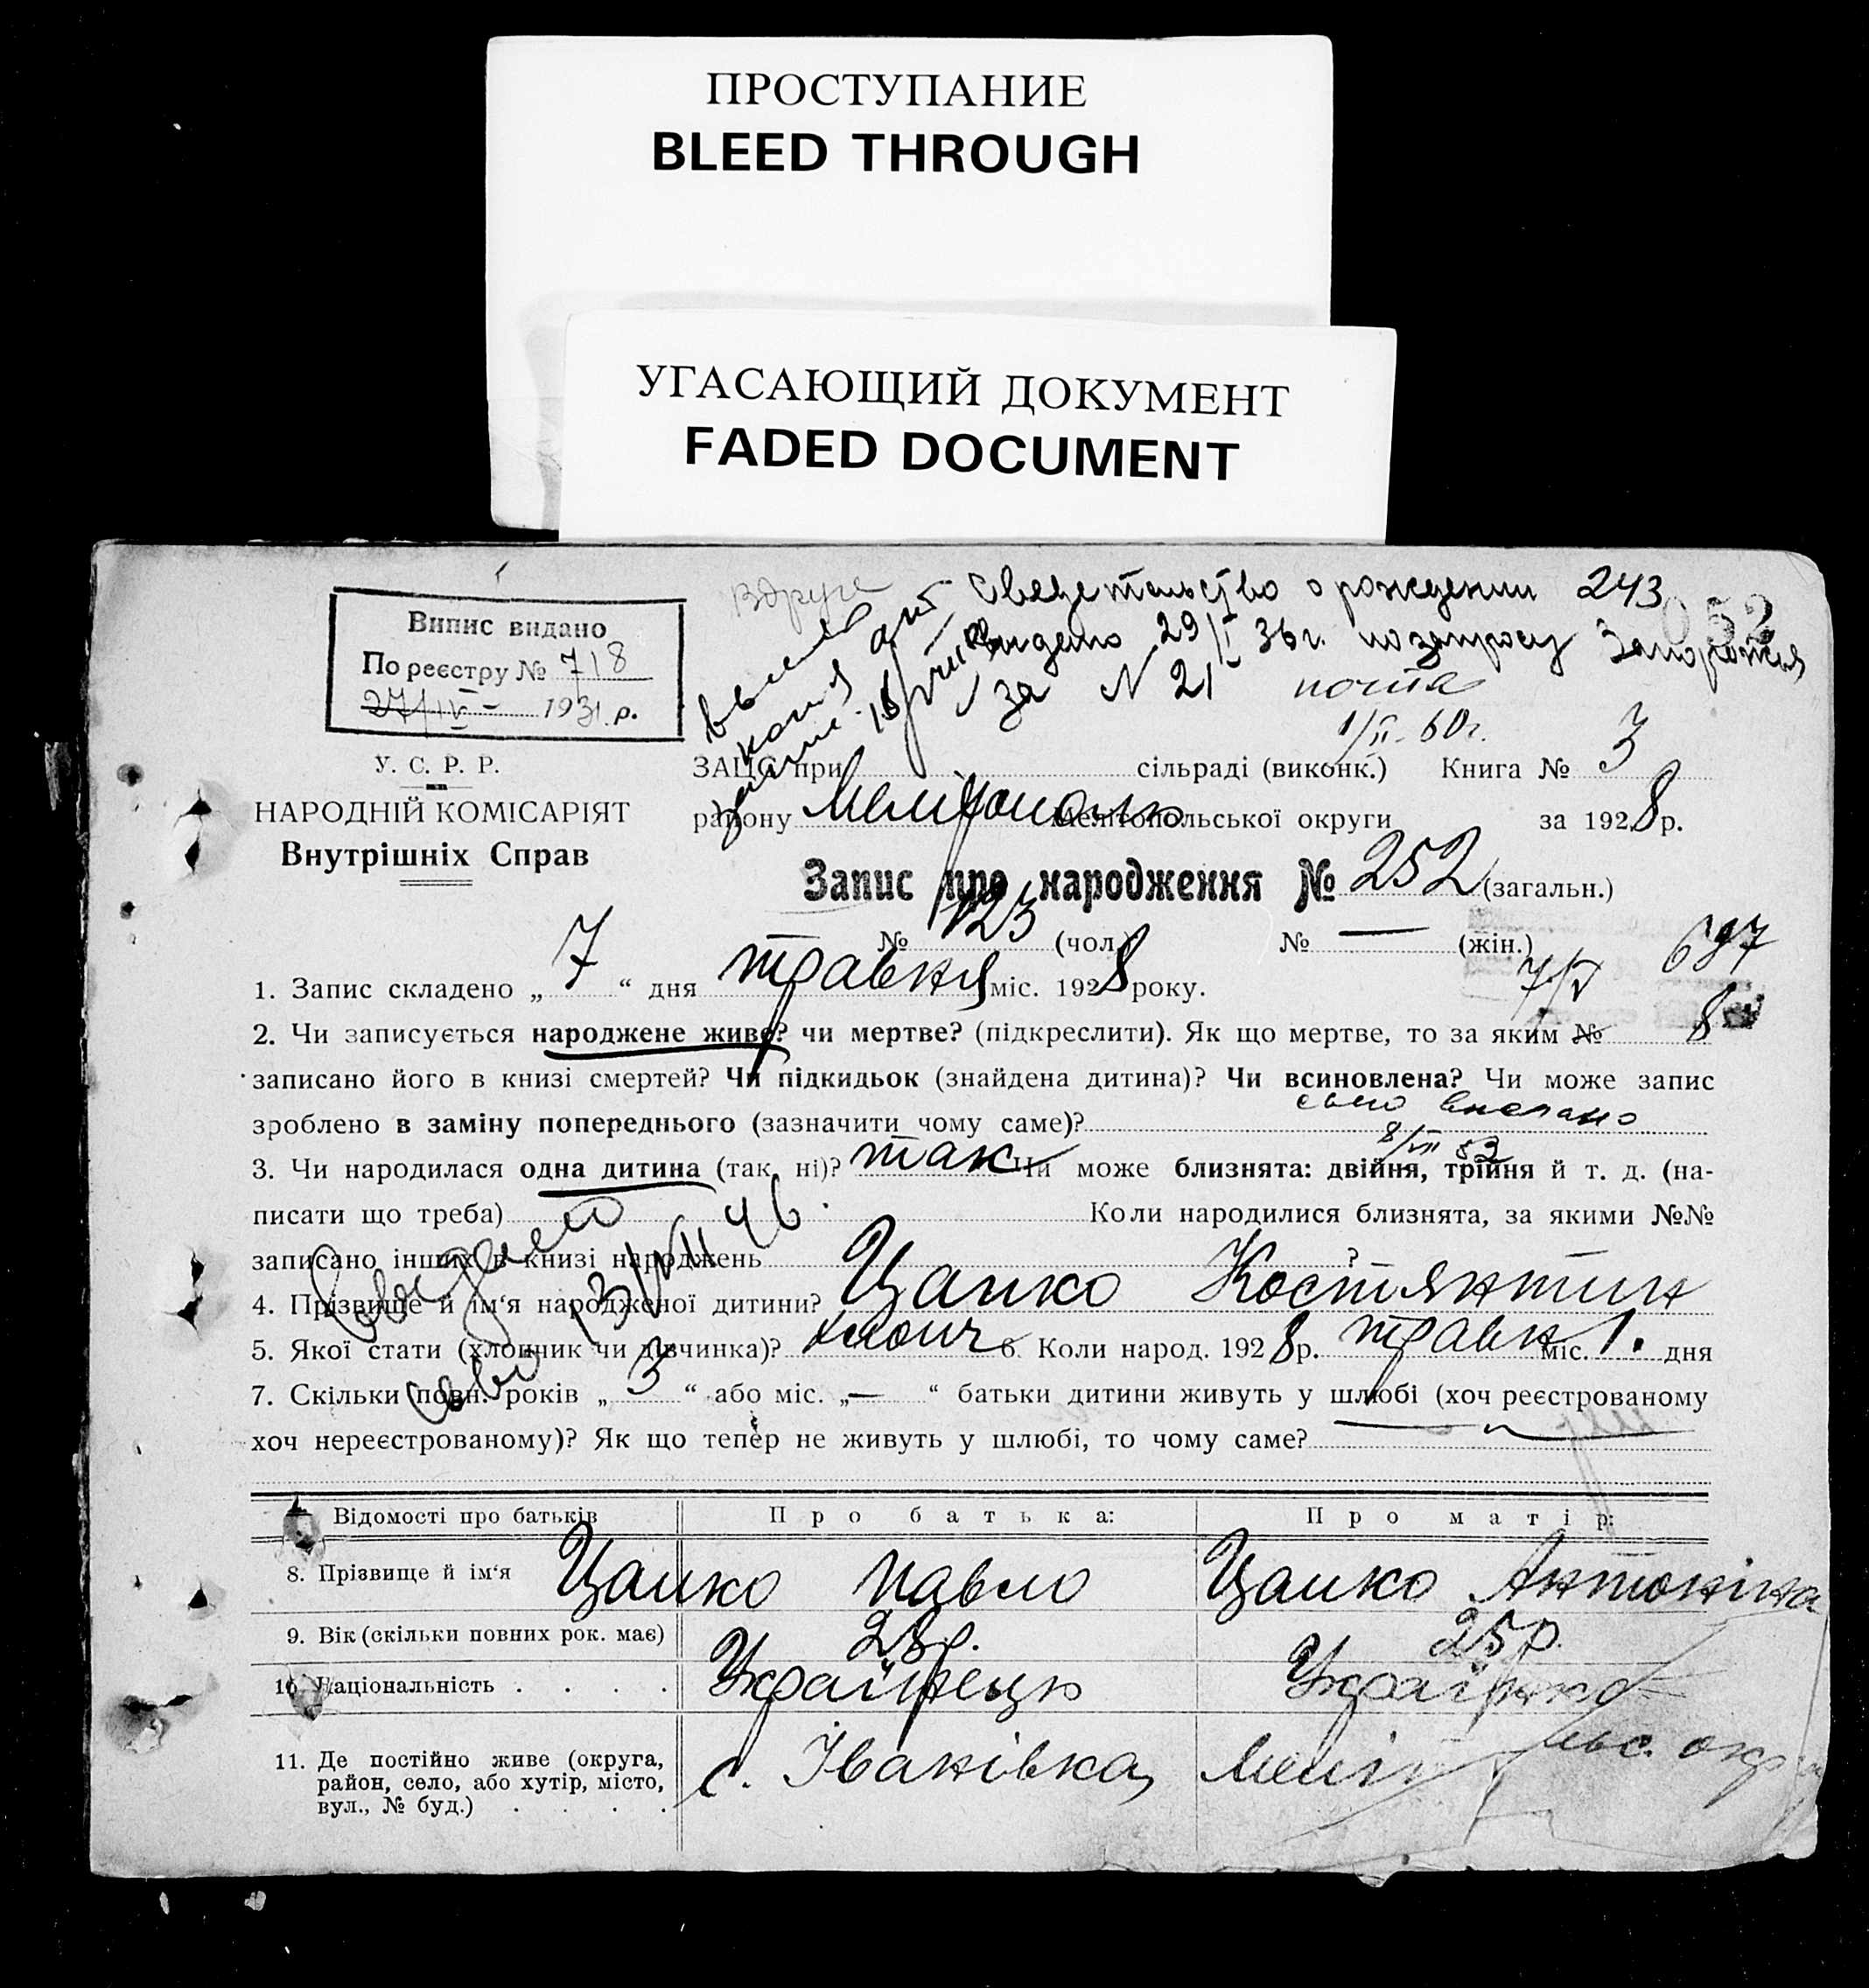 ПРОСТУПАНИЕ
BLEED THROUGH
УГАСАЮЩИЙ ДОКУМЕНТ
FADED DOCUMENT
Вдруге Свидетельство о рождении 243
052
29/I 36 г. по запросу Запорожья
за N 21 почта
1/II-60 г.
Випис видано
По реєстру № 718
27/IV - 1931 р.
У. С. Р. Р.
НАРОДНІЙ КОМІСАРІЯТ
Внутрішніх Справ
ЗАЦС при сільраді (виконк.) Книга № 3
району Мелітополь Мелітопольської округи за 1928 р.
Запис про народження № 252 (загальн.)
№ 123 (чол.) № — (жін.)
697
7/V
8
1. Запис складено „ 7 “ дня травня міс. 1928 року.
2. Чи записується народжене живе? чи мертве? (підкреслити). Як що мертве, то за яким №
записано його в книзі смертей? Чи підкидьок (знайдена дитина)? Чи всиновлена? Чи може запис
зроблено в заміну попереднього (зазначити чому саме)?
8/VII 53
3. Чи народилася одна дитина (так, ні)? так Чи може близнята: двійня, трійня й т. д. (на-
писати що треба) Коли народилися близнята, за якими №№
записано інших в книзі народжень ?
4. Прізвище й ім‘я народженої дитини? Цапко Костянтин
5. Якої стати (хлопчик чи дівчинка)? хлопч 6. Коли народ. 1928 р. травн міс. 1. дня
7. Скільки повн. років „ 3 “ або міс. „ — “ батьки дитини живуть у шлюбі (хоч реєстрованому
хоч нереєстрованому)? Як що тепер не живуть у шлюбі, то чому саме?
Відомості про батьків Про батька: Про матір:
8. Прізвище й ім‘я Цапко Павло Цапко Антоніна
9. Вік (скільки повних рок. має) 28 р. 25 р.
10. Національність . . . . Українець Українка
11. Де постійно живе (округа,
район, село, або хутір, місто,
вул., № буд.) . . . .
с. Іванівка, окр